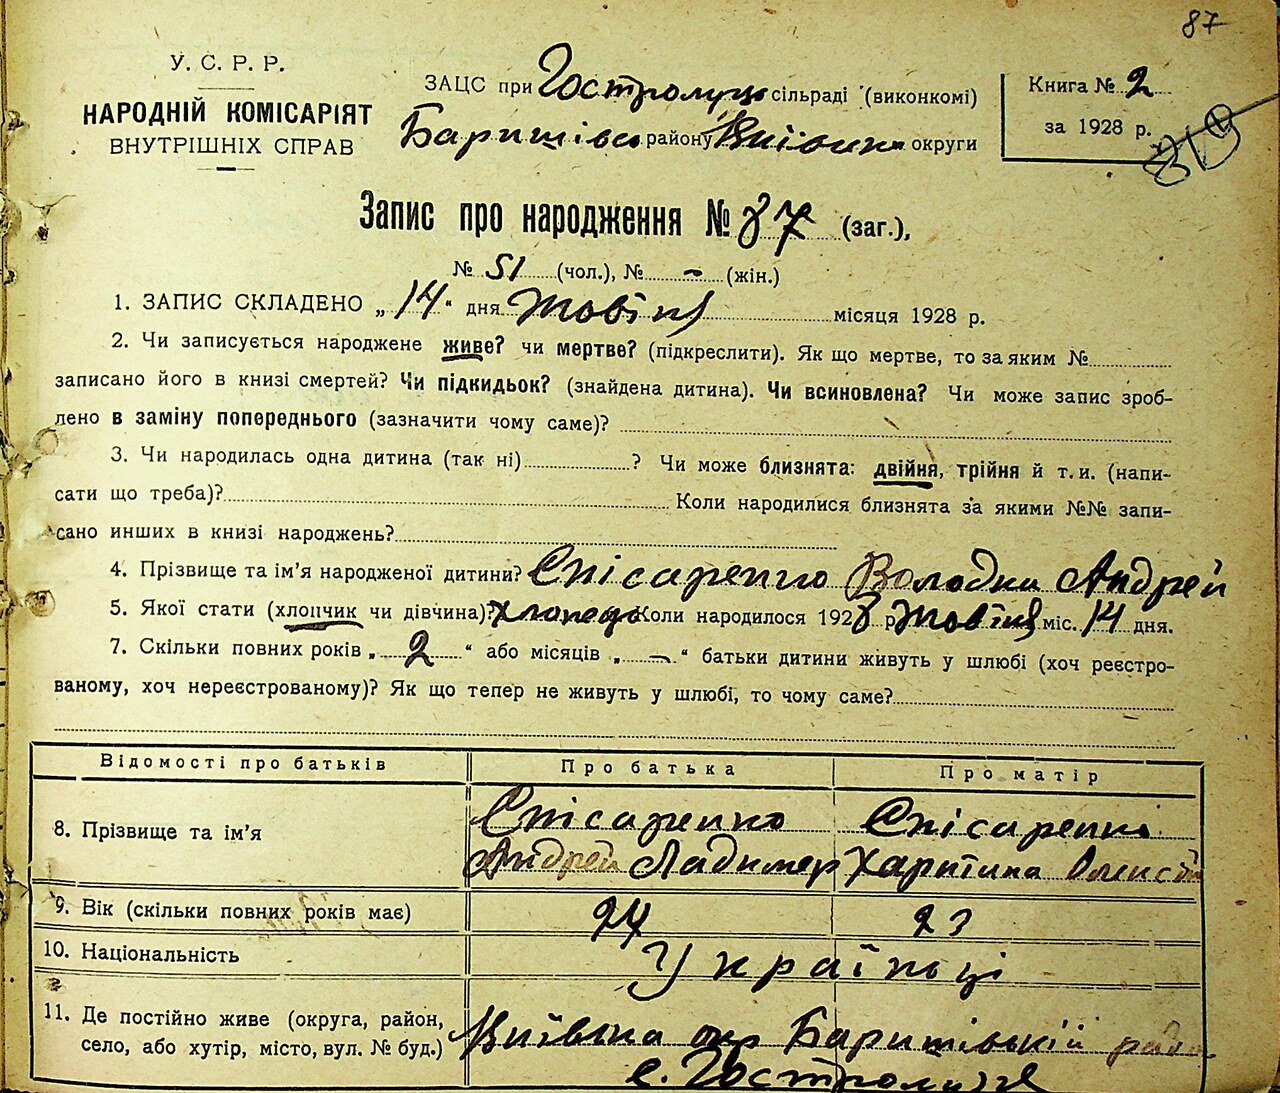 87
У. С. Р. Р.
НАРОДНІЙ КОМІСАРІЯТ
ВНУТРІШНІХ СПРАВ
ЗАЦС при Гостролуць сільраді (виконкомі)
Баришівсь району Київськ округи
Книга № 2
за 1928 р.
319
Запис про народження № 87 (заг.),
№ 51 (чол.), № - (жін.)
1. ЗАПИС СКЛАДЕНО „14“ дня Жовтня місяця 1928 р.
2. Чи записується народжене живе? чи мертве? (підкреслити). Як що мертве, то за яким №
записано його в книзі смертей? Чи підкидьок? (знайдена дитина). Чи всиновлена? Чи може запис зроб-
лено в заміну попереднього (зазначити чому саме)?
3. Чи народилась одна дитина (так ні) ? Чи може близнята: двійня, трійня й т. и. (напи-
сати що треба)? Коли народилися близнята за якими №№ запи-
сано инших в книзі народжень?
4. Прізвище та ім’я народженої дитини? Спісаренко Володим Андрей
5. Якої стати (хлопчик чи дівчина)? хлопець Коли народилося 1928 р. Жовтня міс. 14 дня.
7. Скільки повних років „2“ або місяців „—“ батьки дитини живуть у шлюбі (хоч реєстро-
ваному, хоч нереєстрованому)? Як що тепер не живуть у шлюбі, то чому саме?
Відомості про батьків Про батька Про матір
8. Прізвище та ім’я Спісаренко Спісаренко
Андрей Ладимер Харитина Олексій
9. Вік (скільки повних років має) 24 23
10. Національність Українці
11. Де постійно живе (округа, район, Київська окр Баришівський район
село, або хутір, місто, вул. № буд.) с. Гостролуччя